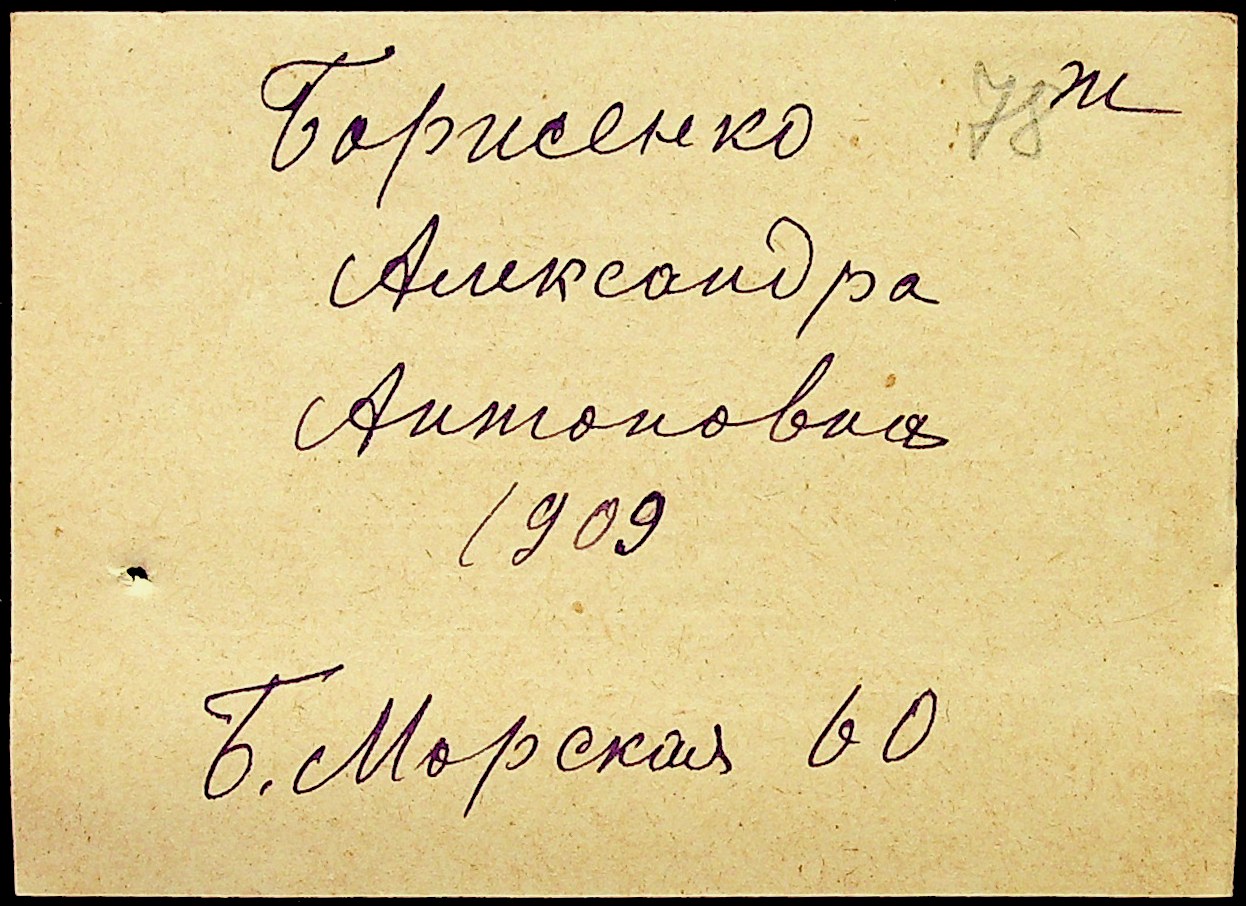 Борисенко 78 т
Александра
Антоновна
1909
Б. Морская 60